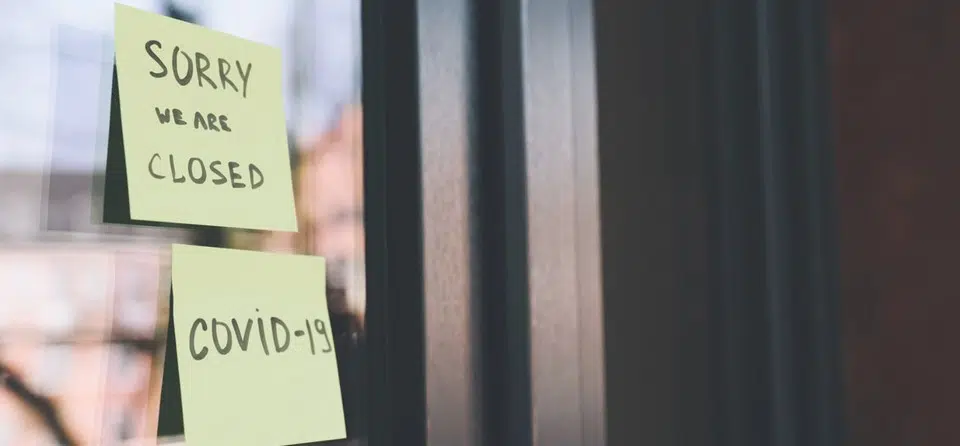 SORRY
WE ARE
CLOSED
COViD-19